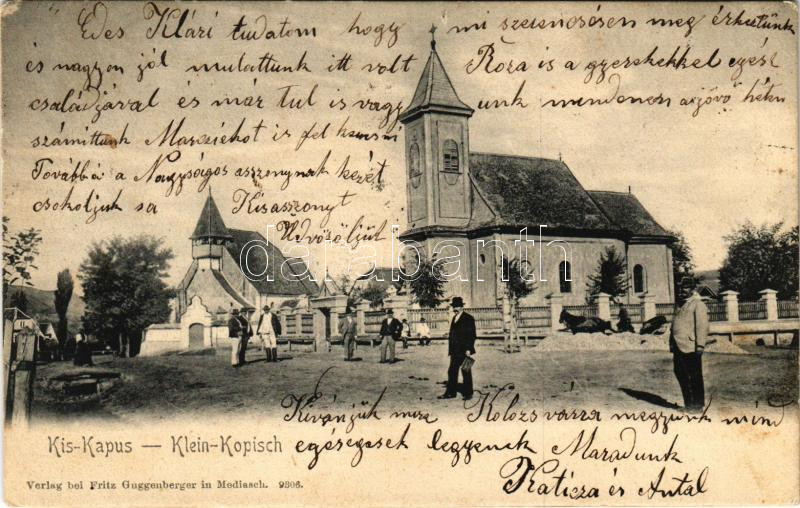 Édes Klári tudatom hogy mi szerencsésen meg érkeztünk
és nagyon jól mulattunk itt volt Róza is a gyerekekkel egész
családjával és már tul is vagyunk mindenen a jövő héten
számittunk Marcziékot is fel
Továbbá a Nagyságos asszonynak kezét
csokoljuk sa Kisasszonyt
Üdvösöljük
darabanth
Kivánjuk mire Kolozsvárra megyunk mind
egéségesek legyenek Maradunk
Katicza és Antal
Kis-Kapus — Klein-Kopisch
Verlag bei Fritz Guggenberger in Mediasch. 9306.